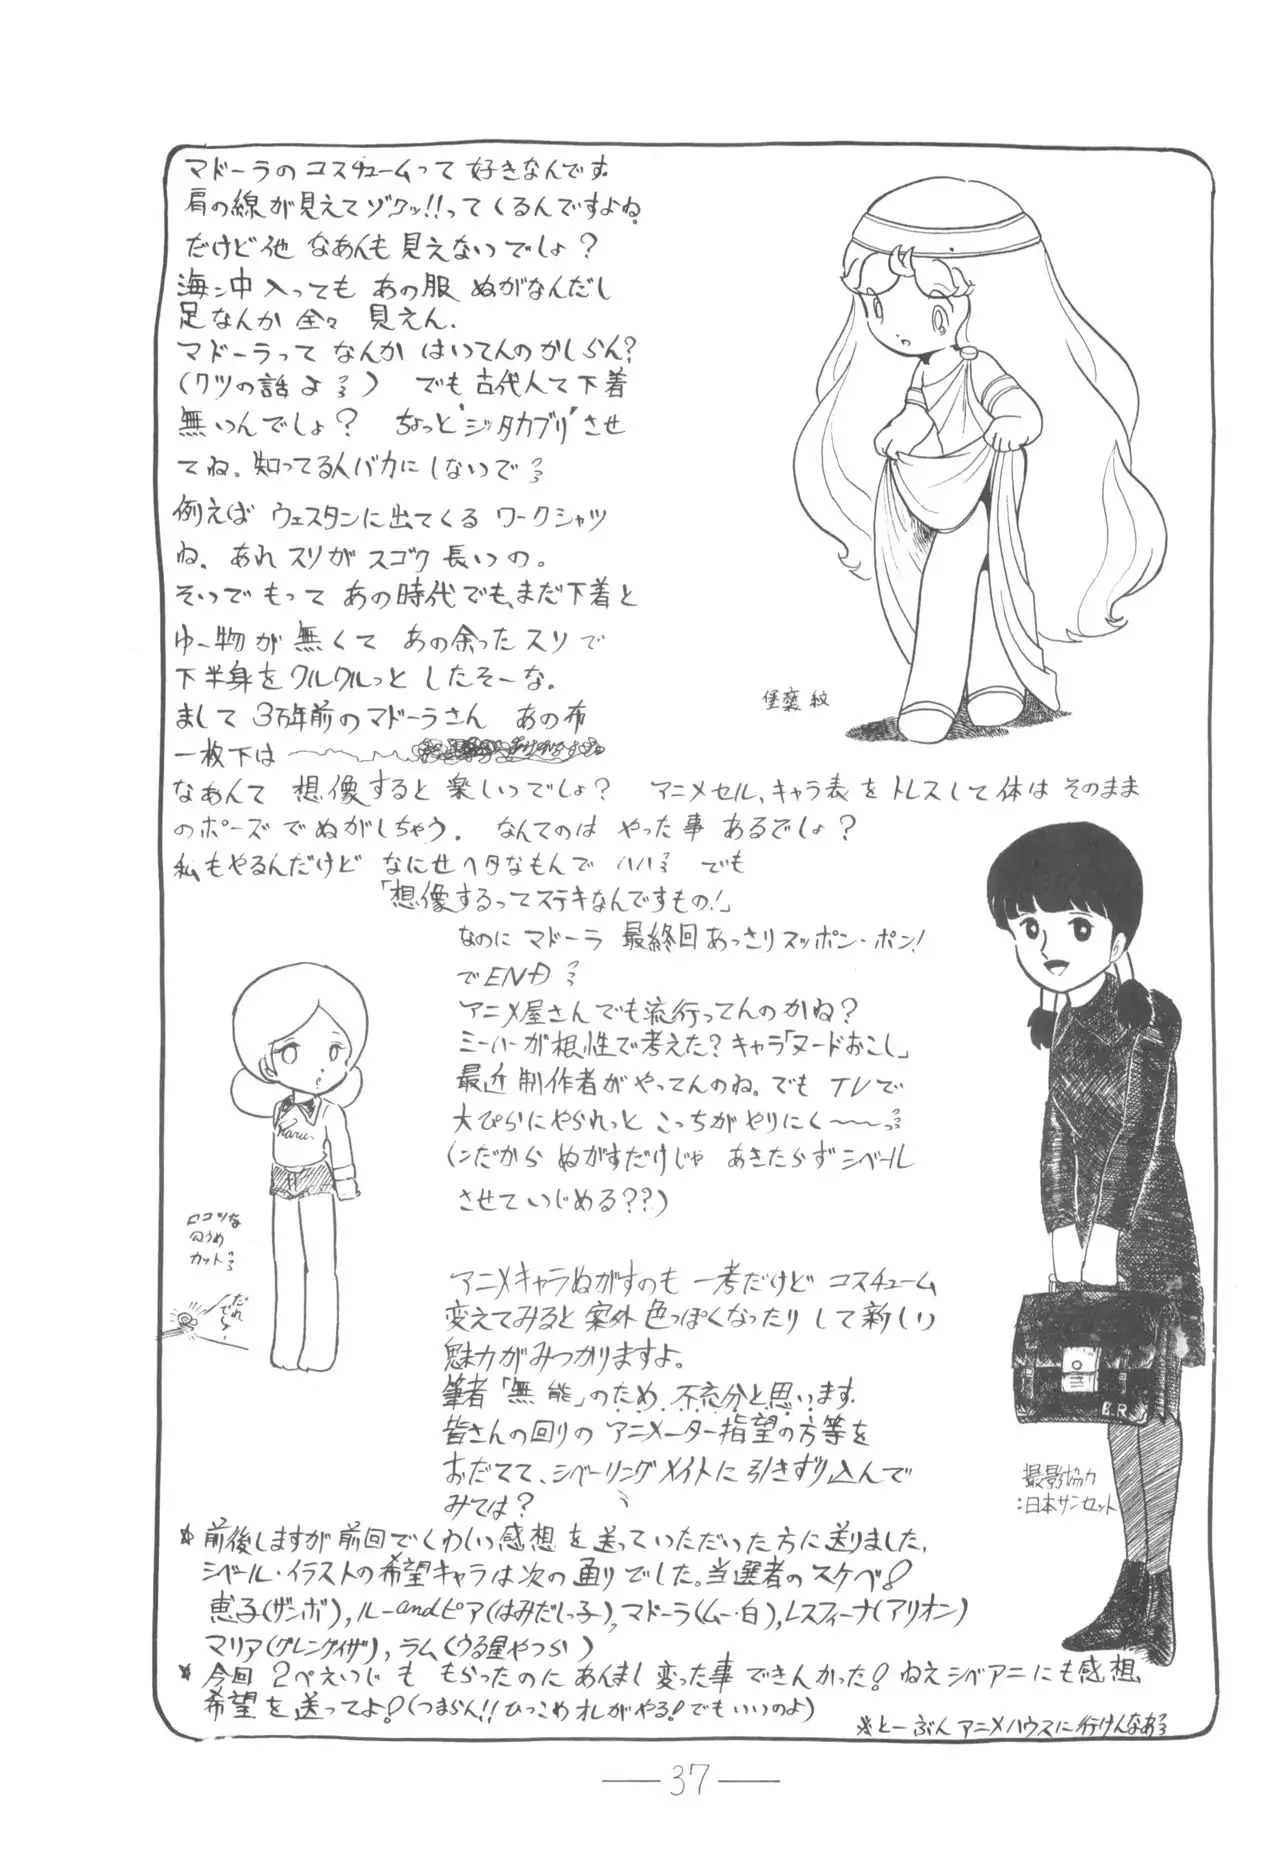 マドーラのコスチュームって 好きなんです.
肩の線が見えてゾクッ!!ってくるんですよね.
だけど他 なあんも見えないでしょ?
海ン中入っても あの服 ぬがなんだし
足なんか 全々 見えん.
マドーラって なんか はいてんのかしらん?
(クツの話よ) でも古代人て下着
無いんでしょ? ちょっと"シッタカブリ"させ
てね。知ってる人バカにしないで
例えば ウェスタンに出てくる ワークシャツ
ね. あれスソがスゴク長いの。
そいでもって あの時代でも、まだ下着と
ゆー物が無くて あの余ったスソで
下半身をクルクルっと したそーな。
まして 3万年前のマドーラさん あの布
一枚下は
なあんて 想像すると 楽しいでしょ? アニメセル、キャラ表をトレスして体はそのまま
のポーズでぬがしちゃう. なんてのは やった事あるでしょ?
私もやるんだけど なにせヘタなもんで ハハ でも
「想像するってステキなんですもの!」
なのに マドーラ 最終回あっさりスッポン・ポン!
でEND
アニメ屋さんでも流行ってんのかね?
ミーハーが根性で考えた?キャラ「ヌードおこし」
最近制作者がやってんのね。でも TVで
大ぴらにやられっと こっちがやりにく〜〜っ
(だから ぬがすだけじゃ あきたらずシベール
させていじめる??)
アニメキャラぬがすのも 一考だけど コスチューム
変えてみると 案外 色っぽくなったり して新しい
魅力がみつかりますよ。
筆者「無能」のため.不充分と思います.
皆さんの回りの アニメーター指望の方等を
おだてて、シベーリングメイトに引きずり込んで
みては?
ロコツな
穴うめ
カット
だれ
で〜
撮影協力
:日本サンセット
B.R
* 前後しますが前回でくわしい感想を送っていただいた方に送りました.
シベール・イラストの希望キャラは次の通りでした。当選者のスケベ!
恵子(ザンボ), ルーandピア(はみだしっ子), マドーラ(ムー・白), レスフィーナ(アリオン)
マリア(グレンダイザ), ラム(うる星やつら)
* 今回 2ぺえじも もらったのに あんまし変った事できんかった! ねえシベアニにも感想
希望を送ってよ!(つまらん!!ひっこめオレがやる!でもいいのよ)
※とーぶん アニメハウスに行けんなあ
— 37 —